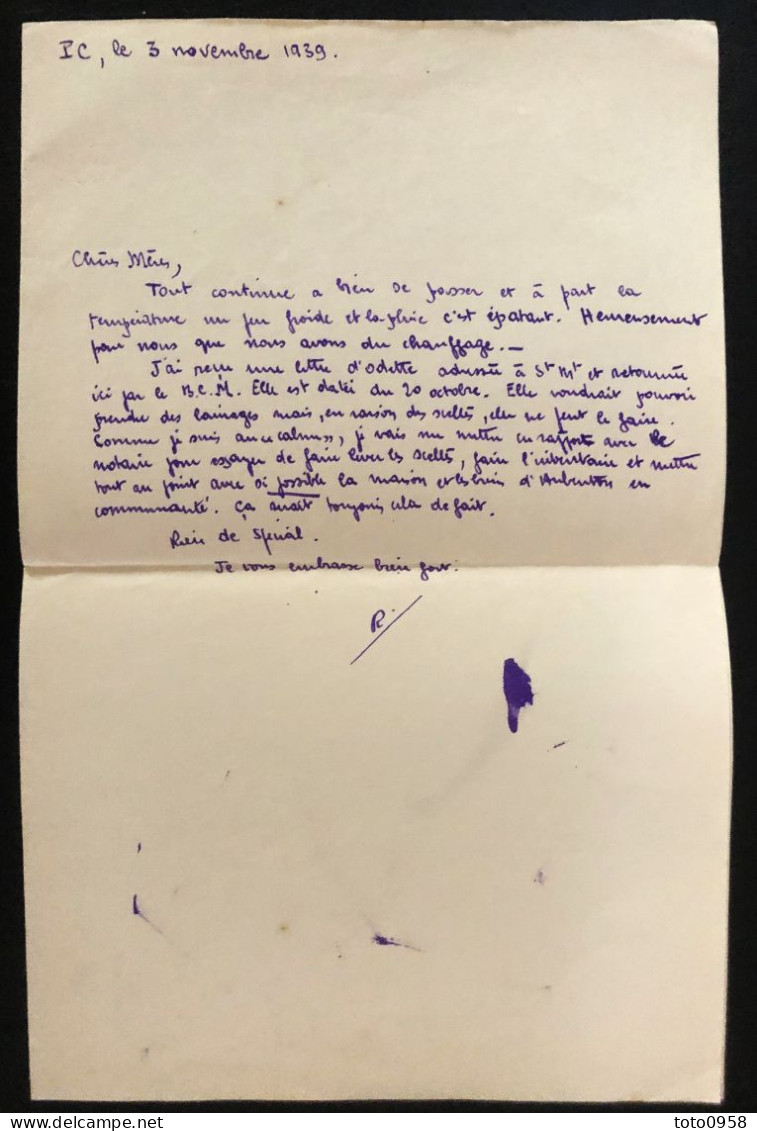 PC, le 3 novembre 1939.
Chères Mères,
Tout continue a bien se passer et à part la
température un peu froide et la pluie c'est épatant. Heureusement
pour nous que nous avons du chauffage.—
J'ai reçu une lettre d'Odette adressée à St Mt et retournée
ici par le B.C.M. Elle est datée du 20 octobre. Elle voudrait pouvoir
prendre des lainages mais, en raison des scellés, elle ne peut le faire.
Comme je suis au calme, je vais me mettre en rapports avec le
notaire pour essayer de faire lever les scellés, faire l'inventaire et mettre
tout au point avec si possible la maison et les biens d'Aubenton en
communauté. Ça serait toujours cela de fait.
Rien de spécial.
Je vous embrasse bien fort.
R.
toto0958